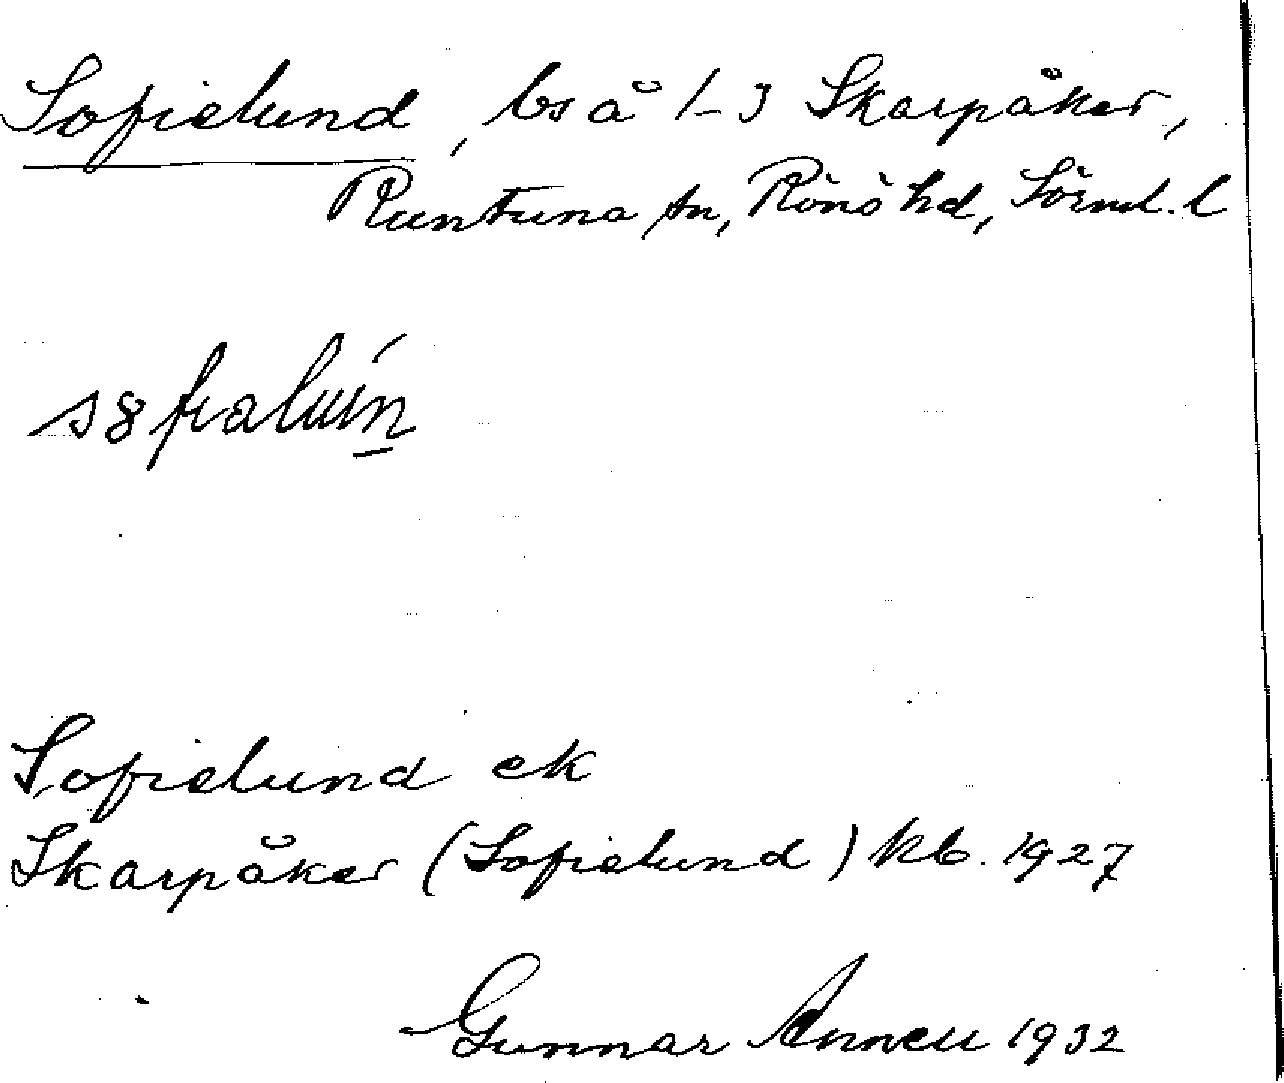 Sofielund, bs å 1-3 Skarpåker,
Runtuna sn, Rönö hd, Sörml. l
Sofielund ek
Skarpåker (Sofielund) kb. 1927
Gunnar Annell 1932